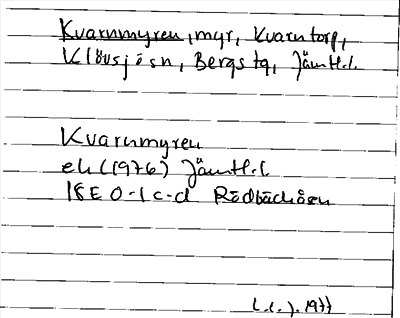 Kvarnmyren, myr, Kvarntorp,
Klövsjö sn, Bergs tg, Jämtl.l.
Kvarnmyren
ek (1976) Jämtl.l
18E 0-1 c-d Rödbäcksåsen
L.L.J. 1977